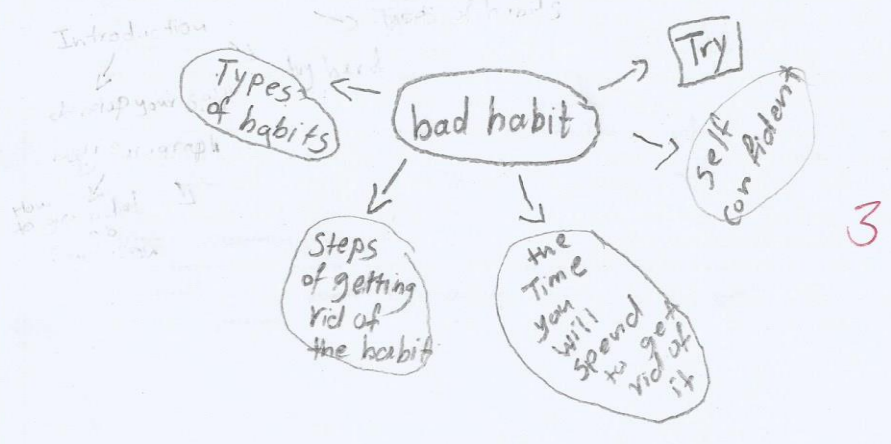 Introduction
Types
of habits
bad habit
Try
self
confident
Steps
of getting
rid of
the habit
the
Time
you
will
spend
to get
rid of
it
3